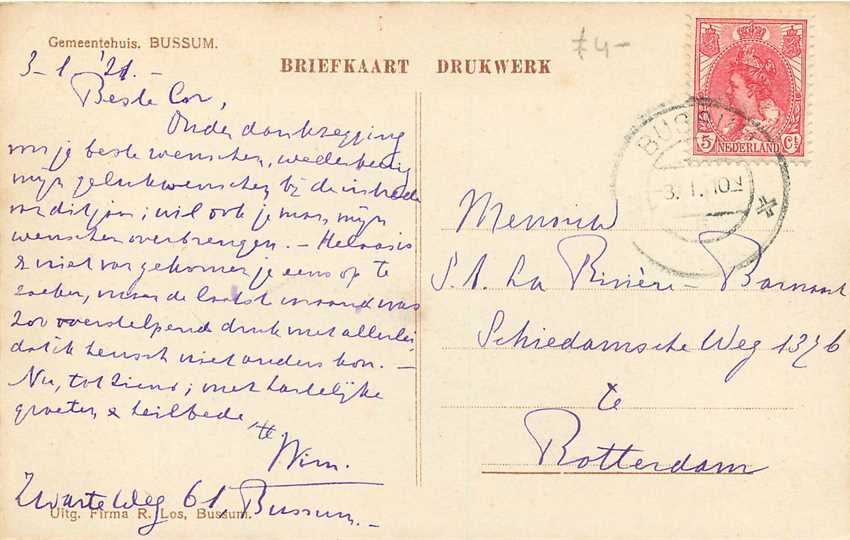 Gemeentehuis. BUSSUM.
3-1 '21.-
Beste Cor,
Onder dankzegging
voor je beste wenschen, wederkeerig
mijn gelukwenschen bij de intrede
van dit jaar; wil ook je man mijn
wenschen overbrengen. - Helaas is
't niet voorgekomen je eens op te
zoeken, maar de laatste maand was
zoo overstelpend druk met allerlei,
dat ik heusch niet anders kon. -
Nu, tot ziens; met hartelijke
groeten, & heilbede,
Wim.
Zwarte Weg 61, Bussum.-
Uitg. Firma R. Los, Bussum.
BRIEFKAART DRUKWERK
≠4-
5 Ct
NEDERLAND
BUSSUM
3. 1. 10N
Mevrouw
S. A. La Rivière-
Schiedamsche Weg 137b
te
Rotterdam